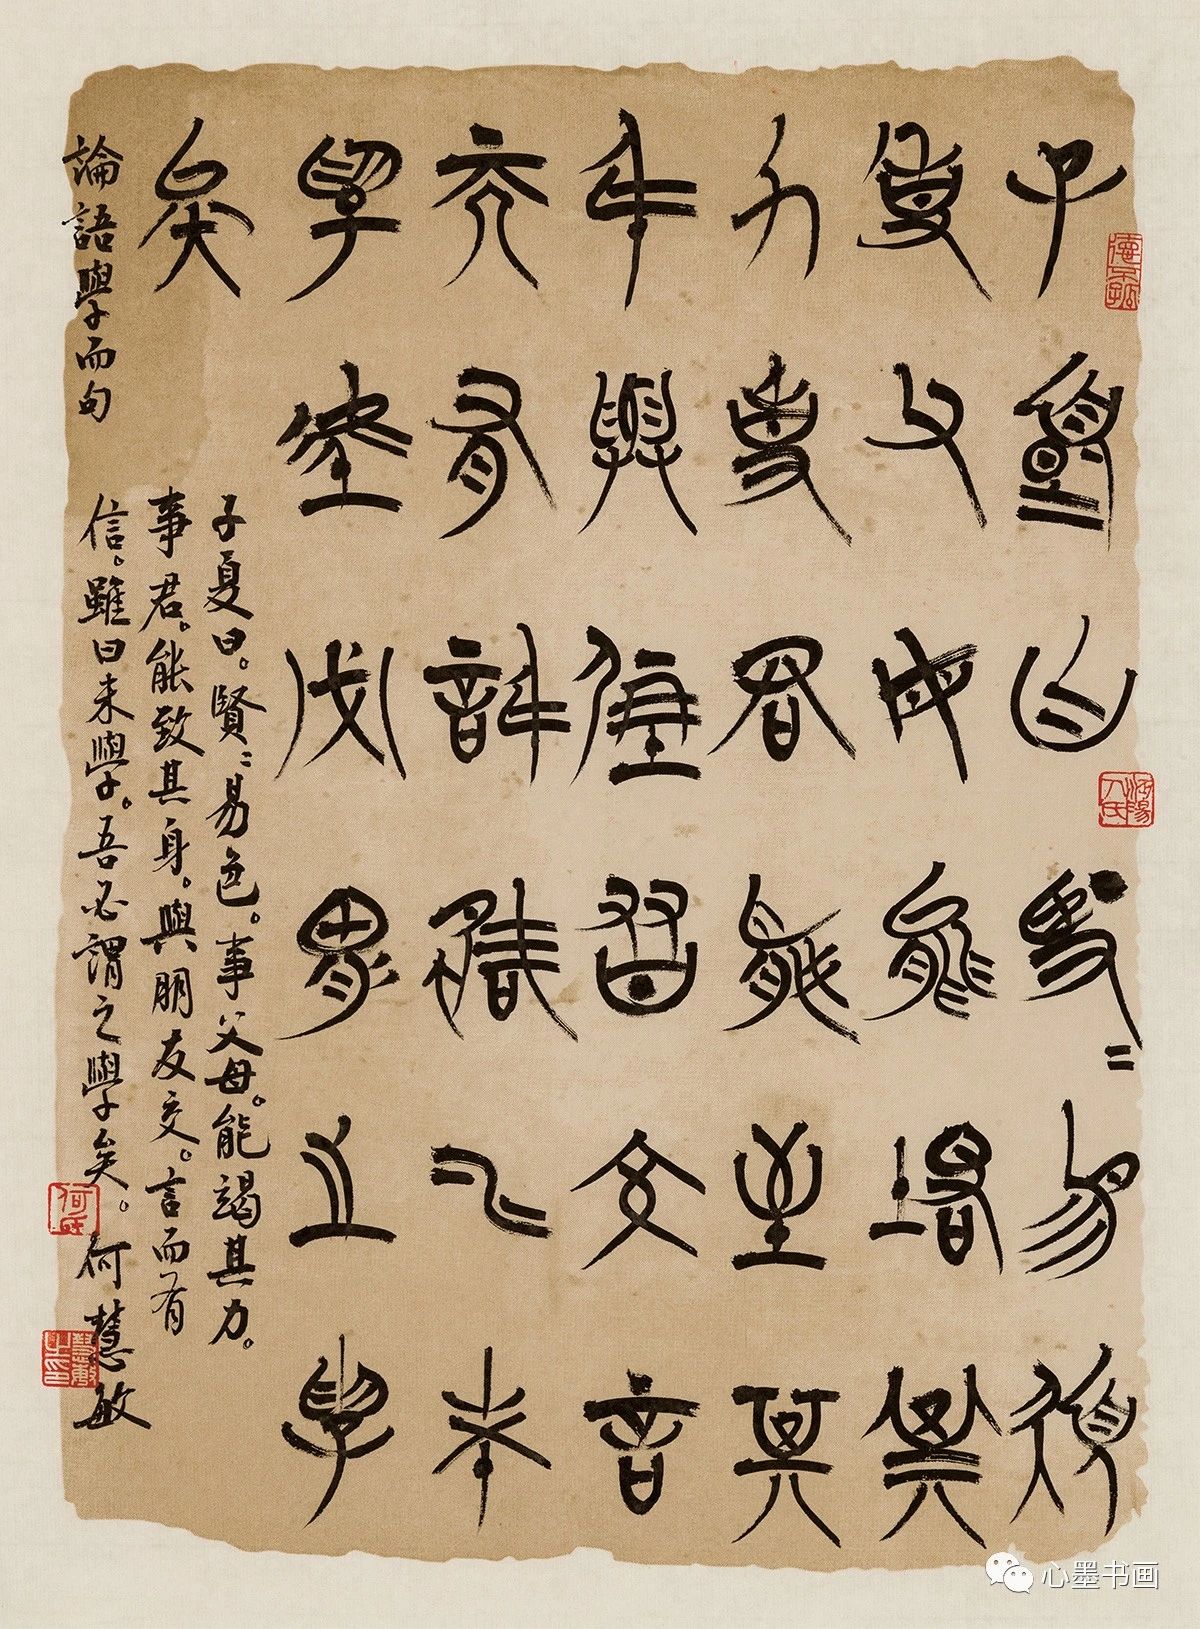 子夏曰賢=易色
事父母能竭其
力事君能致其
身與朋友交言
而有信雖曰未
學吾必謂之學
矣
論語學而句
子夏曰。賢=易色。事父母。能竭其力。
事君。能致其身。與朋友交。言而有
信。雖曰未學。吾必謂之學矣。何慧敏
德不孤
何氏
慧敏之印
心墨书画